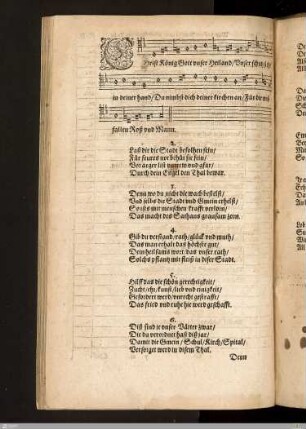 Christ König Gott vnser Heiland / Vnser schutz ist
in deiner hand / Du nimbst dich deiner kirchen an / Für dir müs
fallen Roß vnd Mann.
2.
Laß dir die Stadt befolhen sein /
Für feuers not behüt sie fein /
Vor arger list
Durch dein Engel den Thal bewar.
3.
Denn wo du nicht die wach bestelst /
Vnd selbs die Stadt vnd Gmein erhelst /
So ists mit menschen krafft verlorn /
Das macht des Sathans grausam zorn.
4.
Gib du verstand / rath / glück vnd muth /
Das man erhalt das höchste gut /
Dein heilsams wort das vnser rath /
mit fleiß in diser Stadt.
5.
Hilff das die schön gerechtigkeit /
Zucht / ehr / kunst / lieb vnd einigkeit /
Gefördert werd / vnrecht gestrafft /
Das fried vnd ruh hie werd geschafft.
6.
Diß sind je vnser Väter zwar /
Die du verordnet hast diß jar /
Damit die Gmein / Schul / Kirch / Spital /
Versorget werd in disem Thal.
Denn